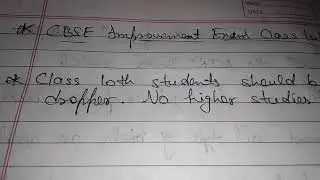 * CBSE Improvement Exam Class
* Class 10th students should b
dropper. No higher studies